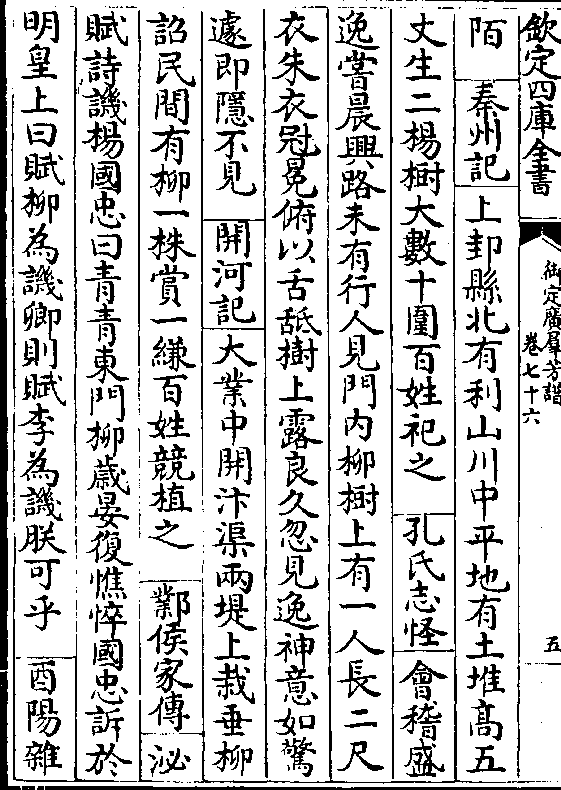 欽定四庫全書
御定廣羣芳譜
卷七十六
五
陌　秦州記　上邽縣北有利山川中平地有土堆高五
丈生二楊樹大數十圍百姓祀之　孔氏志怪　會稽盛
逸嘗晨興路未有行人見門内柳樹上有一人長二尺
衣朱衣冠冕俯以舌舐樹上露良久忽見逸神意如驚
遽即隱不見　開河記　大業中開汴渠兩堤上栽垂柳
詔民間有柳一株賞一縑百姓競植之　鄴侯家傳　泌
賦詩譏楊國忠曰青青東門柳歲晏復憔悴國忠訴於
明皇上曰賦柳為譏卿則賦李為譏朕可乎　酉陽雜